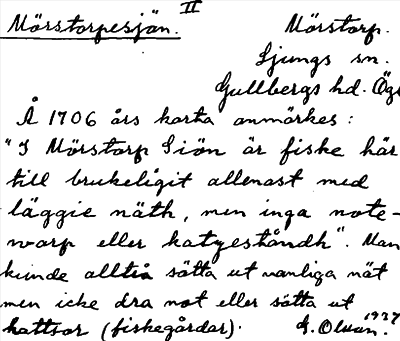 II
Mörstorpesjön. Mörstorp.
Ljungs sn.
Gullbergs hd. Ögl
Å 1706 års karta anmärkes:
"I Mörstorp Siön är fiske här
till brukeligit allenast med
läggie näth, men inga note-
warp eller katzeståndh". Man
kunde alltså sätta ut vanliga nät
men icke dra not eller sätta ut
kattsor (fiskegårdar). 1927